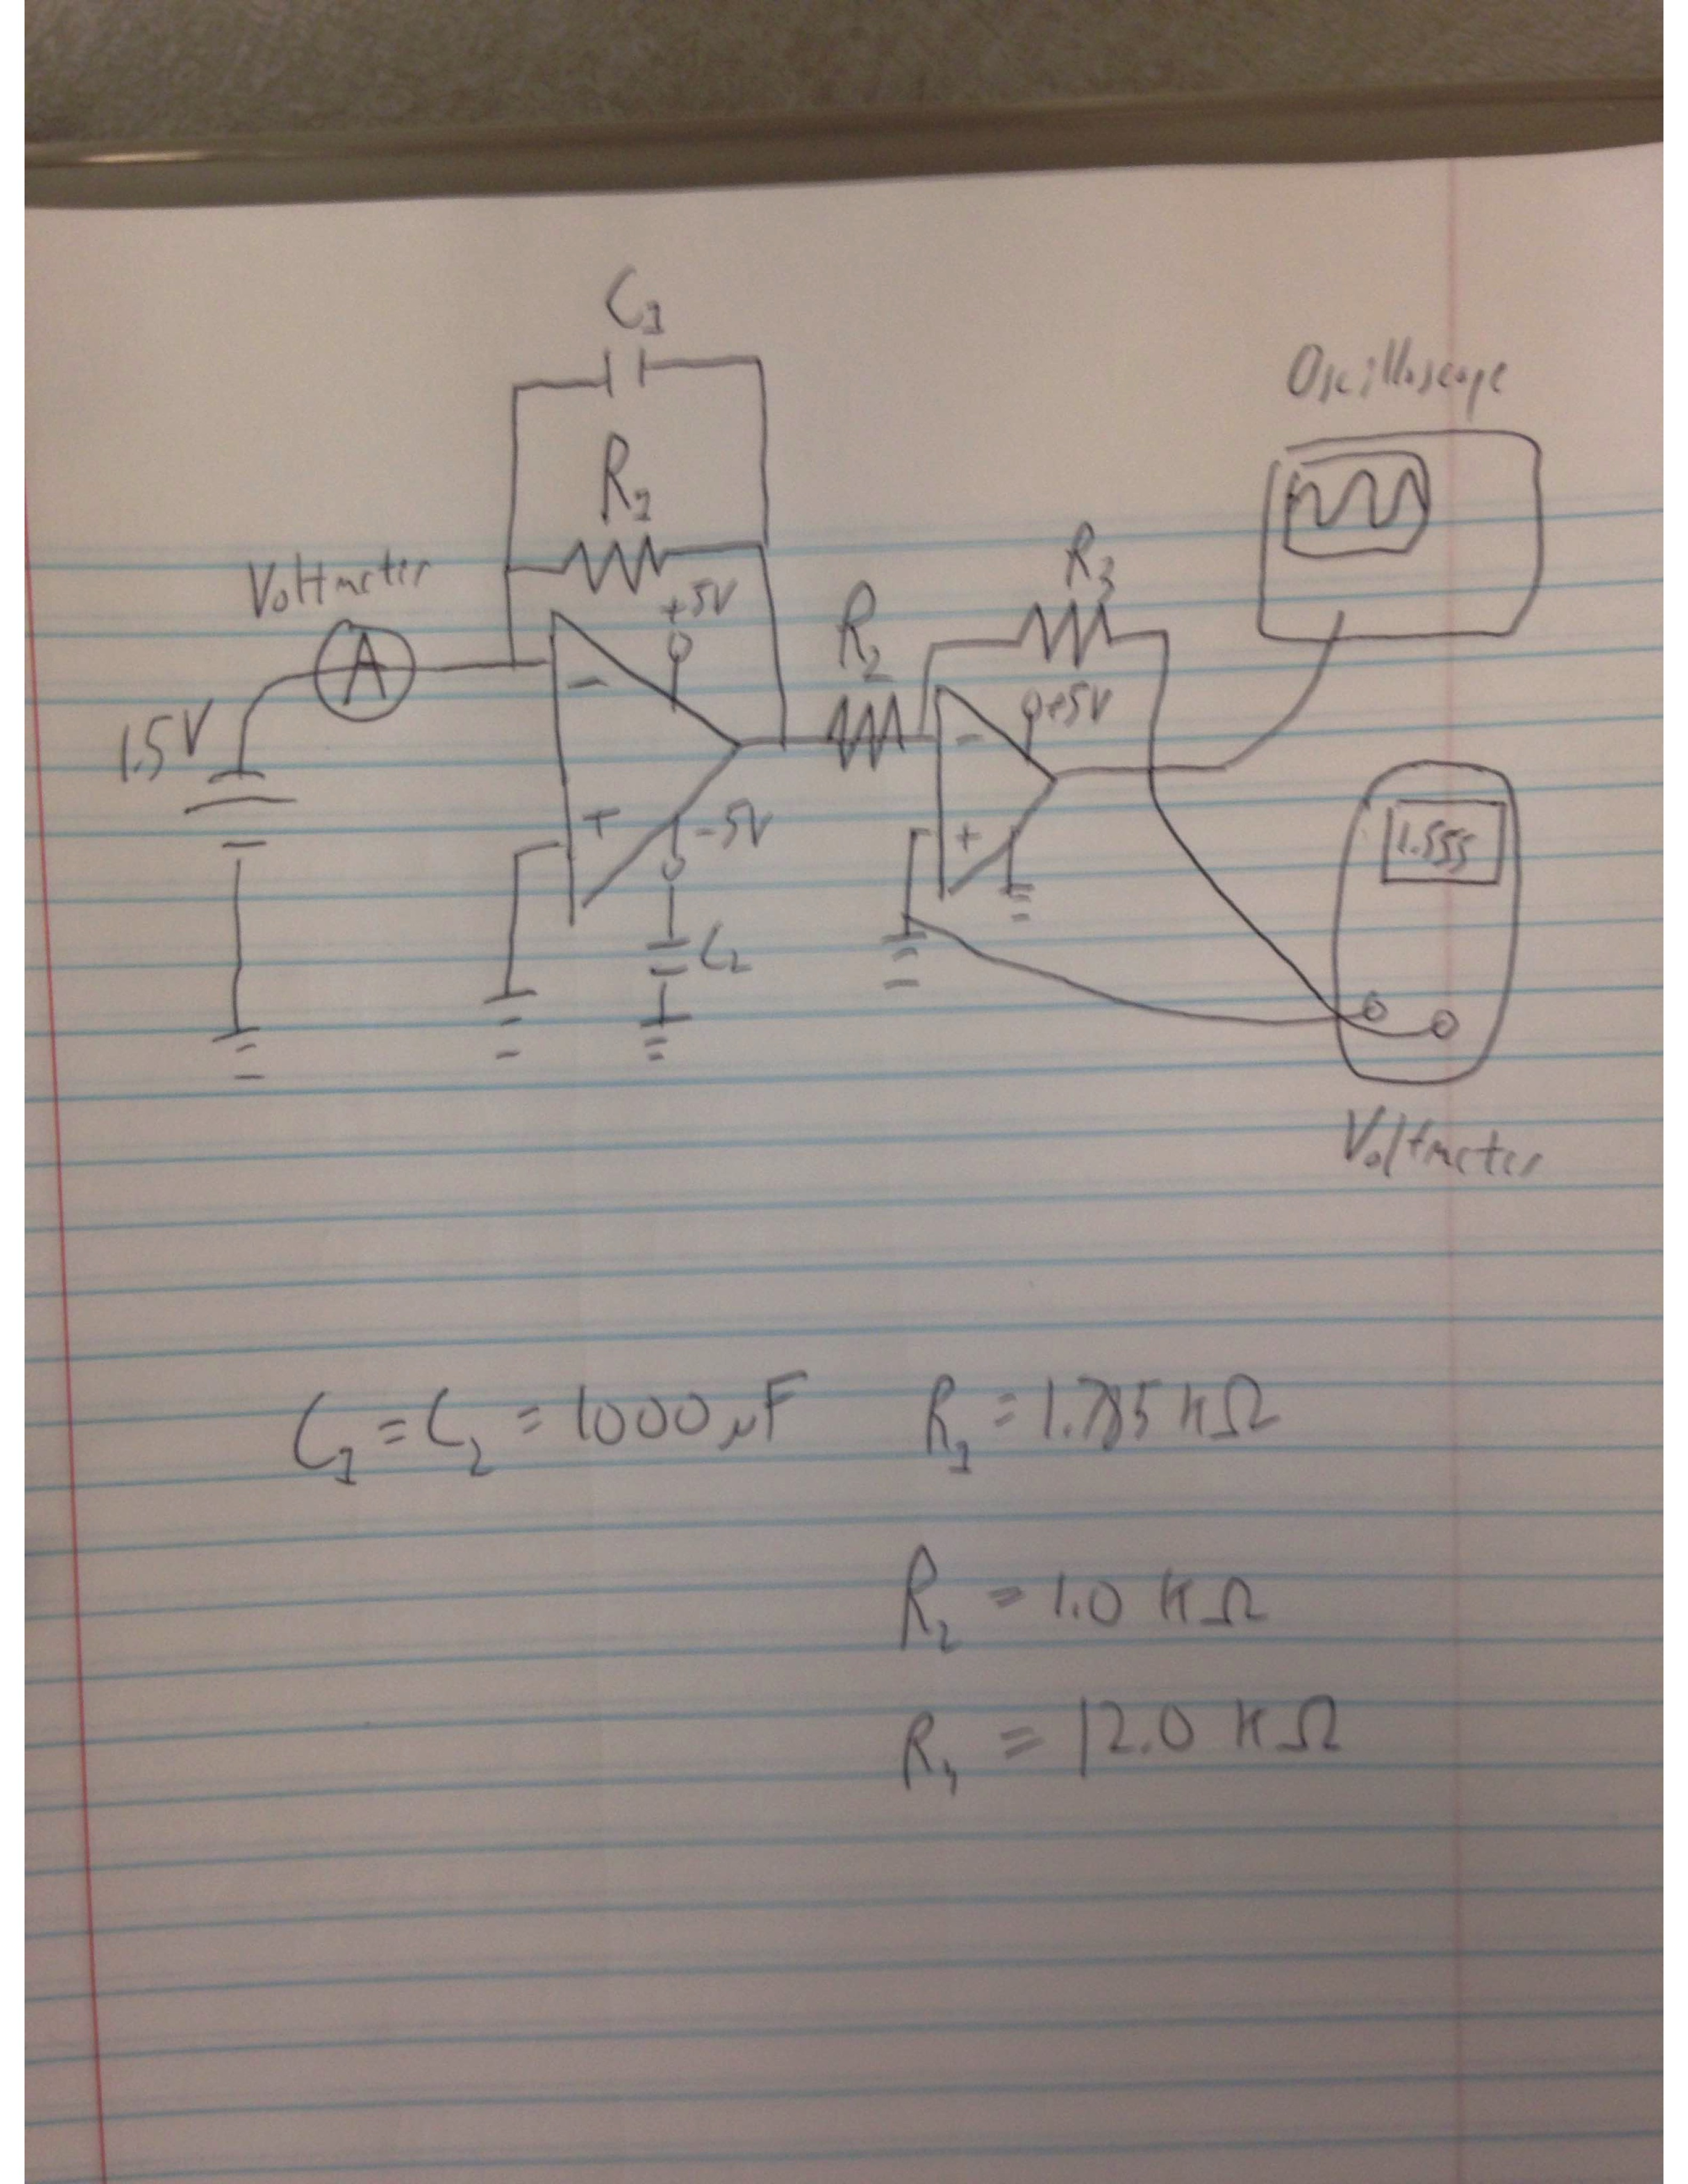 C₁
Oscilloscope
R₁
Voltmeter
+5V
R₂
R₃
A
−
1.5V
+5V
−
+
−5V
+
1.555
C₂
Voltmeter
C₁ = C₂ = 1000 μF R₁ = 1.785 kΩ
R₂ = 1.0 kΩ
R₄ = 12.0 kΩ